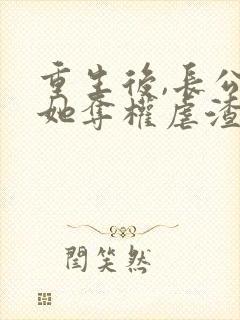 重生後,長公
她奪權虐渣
閆笑然